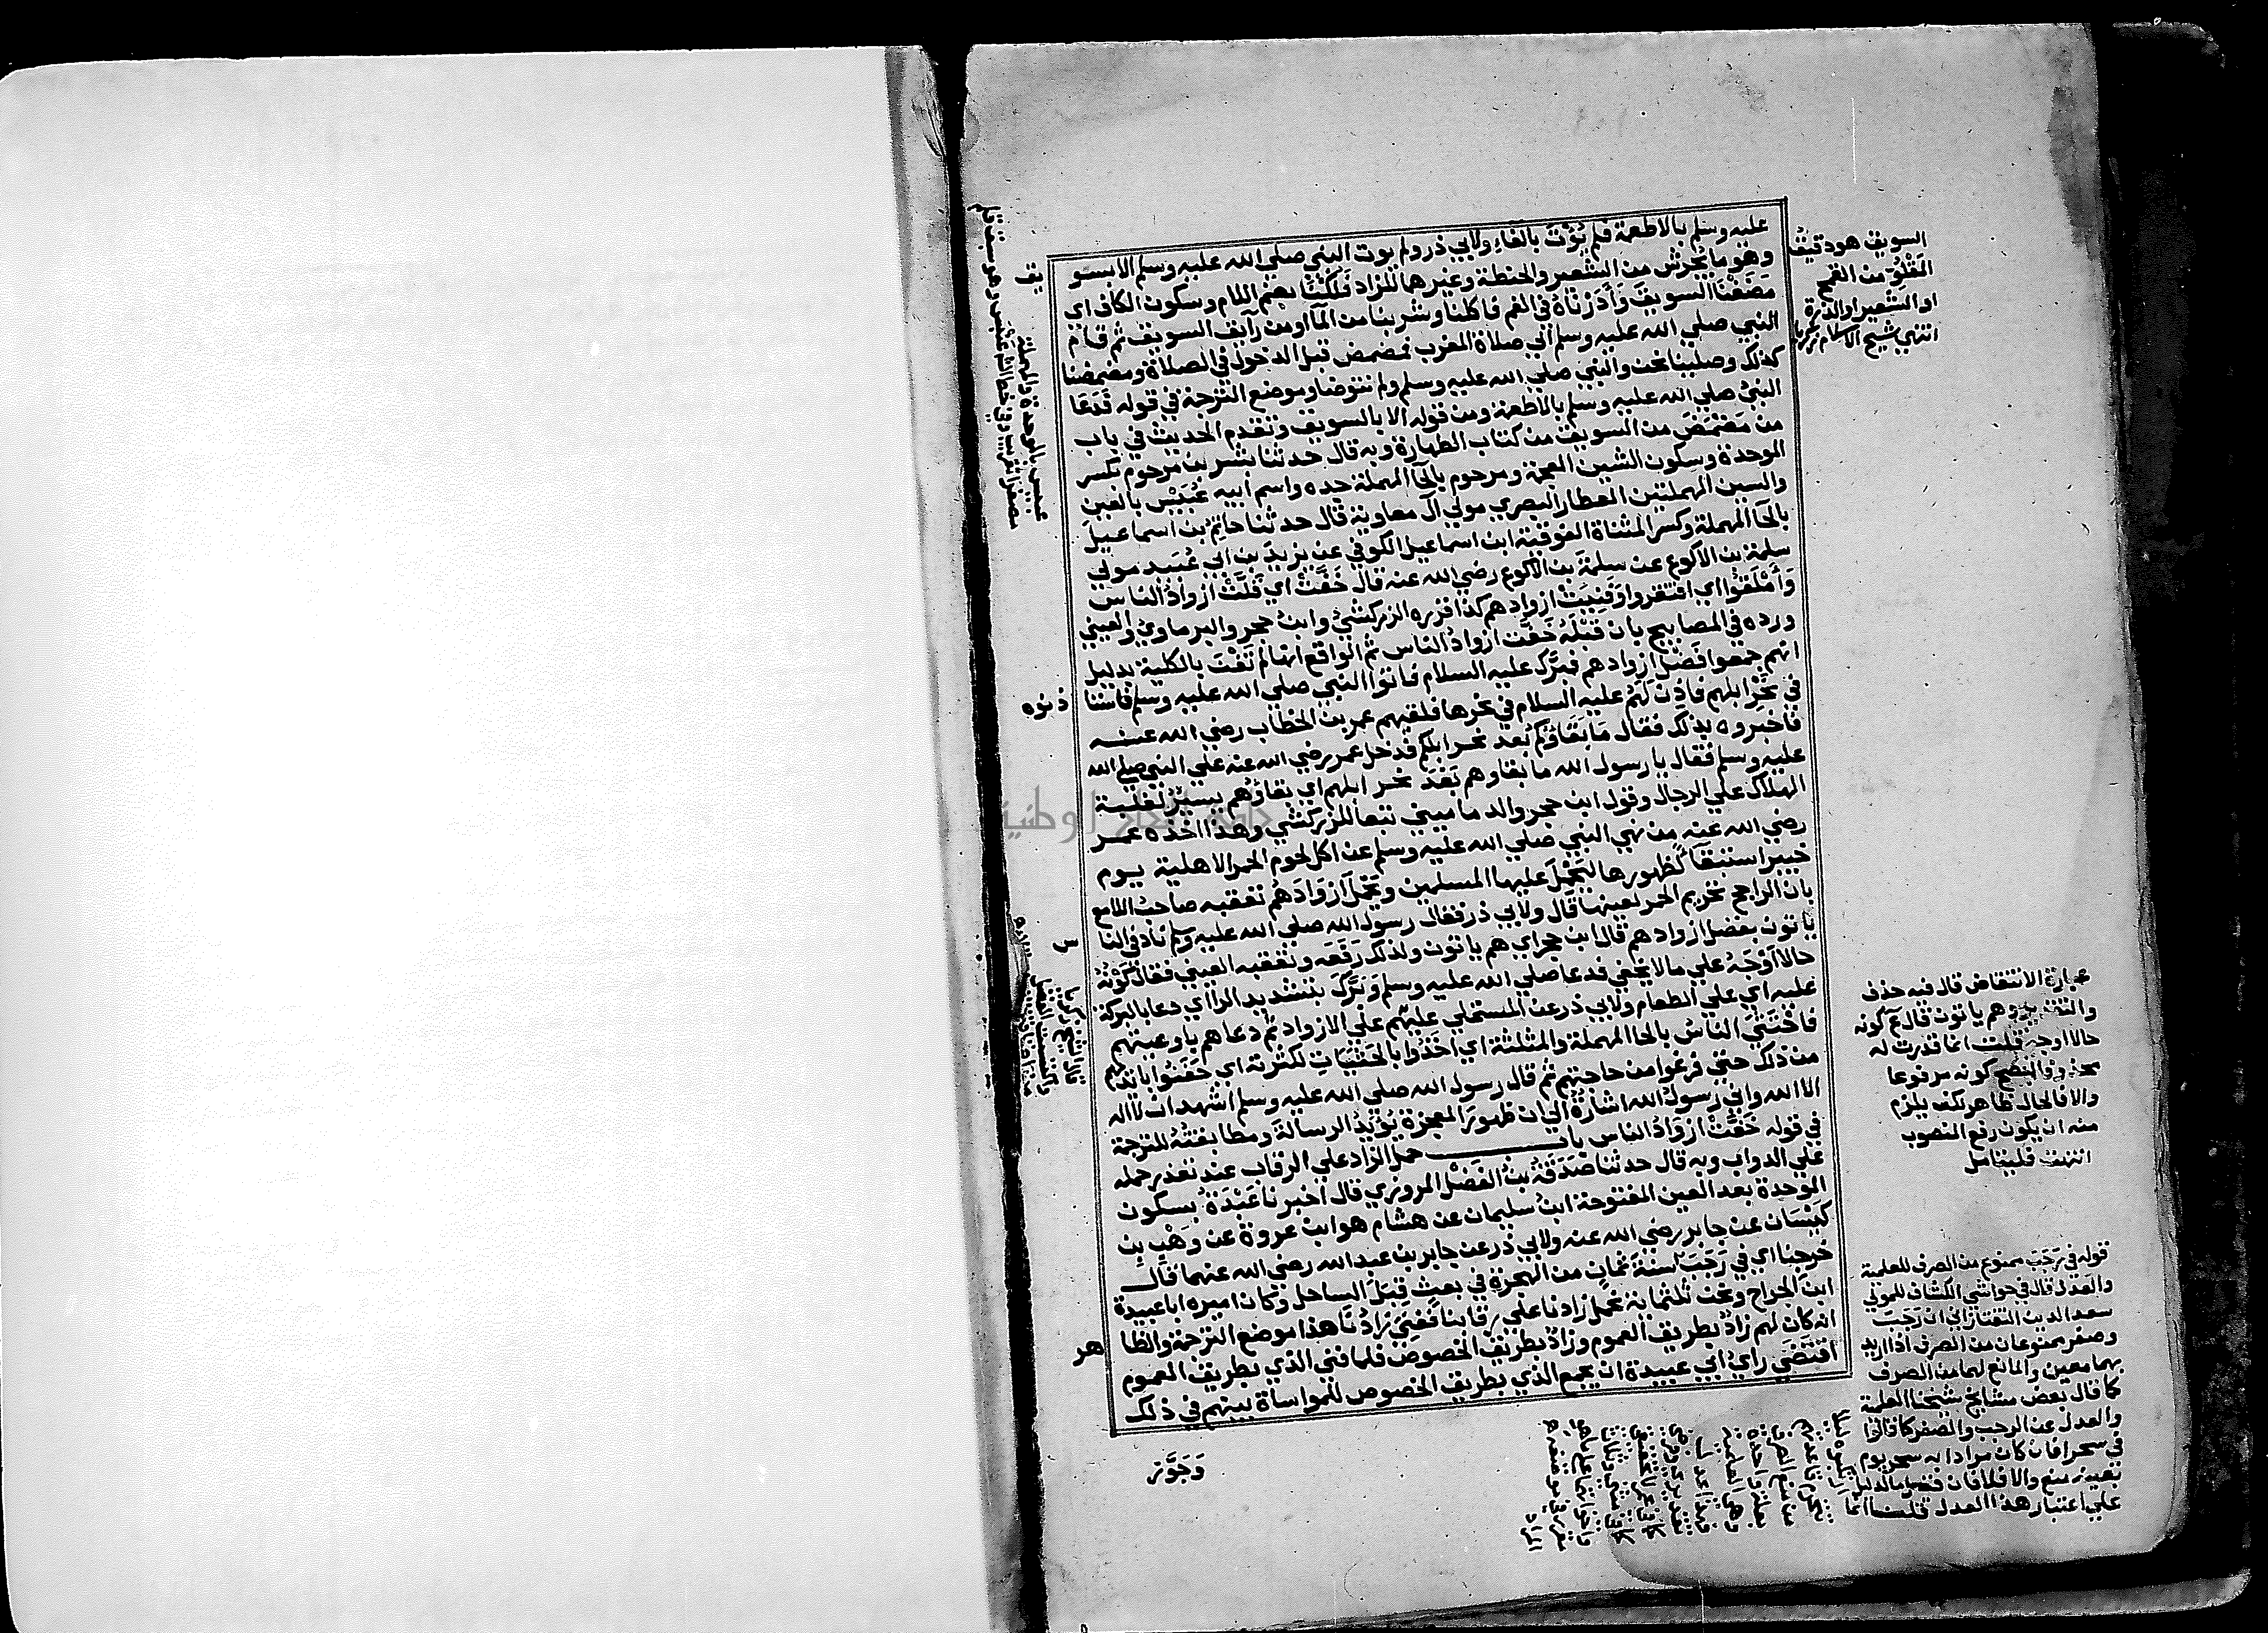 عليه وسلم بالاطعمة فلم يُؤتَ بالفاء ولابي ذر ولم يوت النبي صلي الله عليه وسلم الا بسو
يق
وهو ما يجرش من الشعير والحنطة وغيرها للزاد فَلُكْنَا بضم اللام وسكون الكاف اي
مَضَغْنَا السويقَ وَأَدَرْنَاهُ في الفم فاكلنا وشربنا من المآ او من رايق السويق ثم قام
النبي صلي الله عليه وسلم الي صلاة المغرب فمضمض قبل الدخول في الصلاة ومضمضنا
كذلك وصلينا نحن والنبي صلي الله عليه وسلم ولم نتوضا وموضع الترجمة في قوله فَدَعَا
النبيُ صلي الله عليه وسلم بالاطعمة ومن قوله الا بالسويق وتقدم الحديث في باب
من مَضْمَضَ من السويق من كتاب الطهارة وبه قال حدثنا بشر بن مرحوم بكسر
الموحدة وسكون الشين المعجمة ومرحوم بالحآ المهملة جده واسم ابيه عُبَيْس بالعين
والسين المهملتين العطار البصري مولي آل معاوية قال حدثنا حاتِمُ بن اسماعيلَ
بالحآ المهملة وكسر المثناة الفوقية ابن اسماعيل الكوفي عن يزيدَ بن ابي عُبَيد مولي
سلمة بن الاكوع عن سلمة بن الاكوع رضي الله عنه قال خَفَّتْ اي قَلَّتْ ازوادُ الناس
وَأَمْلَقُوا اي افتقروا وفَنِيَتْ ازوادهم كذا قرره الزركشيُّ وابنُ حجر والبرماويُّ والعيني
ورده في المصابيح بان قَبْلَهُ خَفَّت ازوادُ الناس ثم الواقع انها لم تَفْنَ بالكلية بدليل
انهم جمعوا فَضْلَ ازوادهم فبرَّك عليه السلام فاتوا النبي صلي الله عليه وسلم فاستا
ذنوه
في نَحْرِ ابلهم فاذِنَ لَهُم عليه السلام في نحرها فلقيهم عمر بن الخطاب رضي الله عنه
فاخبروه بذلك فقال مَا بَقَاؤكم بَعد نحر ابلكم فدخل عمر رضي الله عنه علي النبي صلي الله
عليه وسلم فقال يا رسول الله ما بقاوهم بَعْدَ نحر ابلهم اي بقاؤهم يسيرٌ لغلبة
الهلاك علي الرجال وقول ابن حجر والدماميني تبعا للزركشي وهذا اخذه عمر
رضي الله عنه من نهي النبي صلي الله عليه وسلم عن اكل لحوم الحمر الاهلية يوم
خيبر استبقآً لظهورها ليَحْمِلَ عليها المسلمين ويَحْمِلَ ازوَادَهُم تعقبه صاحبُ اللامع
بان الراجح تحريم الحمر لعينها قال ولابي ذر فقال رسول الله صلي الله عليه وسلم ناد في النا
س
ياتون بفضل ازوادهم قال ابن حجر اي هم ياتون ولذلك رَفَعَه وتعقبه العيني فقال كَوْنُهُ
حالا اَوْجَهُ علي ما لا يخفي فدعا صلي الله عليه وسلم وَبَرَّكَ بتشديد الرا اي دعا بالبركة
عليه اي علي الطعام ولابي ذر عن المستملي عليهم علي الازواد ثم دعاهم باوعيتهم
فَاحْتَثَي الناسُ بالحا المهملة والمثلثة اي اخَذُوا بالحَثَيَاتِ لكثرته اي حَفَنُوا بايديهم
من ذلك حتي فرغوا من حاجتهم ثم قال رسول الله صلي الله عليه وسلم اشهد ان لا اله
الا الله واني رسولُ الله اشارةٌ الي ان ظهورَ المعجزة يُؤَيِّدُ الرسالةَ ومطابقتُهُ للترجمة
في قوله خَفَّتْ ازوادُ الناس باب حمل الزاد علي الرقاب عند تعذر حمله
علي الدواب وبه قال حدثنا صَدَقَةُ بنُ الفَضْل المروزي قال اخبرنا عَبْدَةُ بسكون
الموحدة بعد العين المفتوحة ابنُ سليمان عن هشام هو ابن عروة عن وَهْبِ بن
كَيْسَان عن جابر رضي الله عنه ولابي ذر عن جابر بن عبد الله رضي الله عنهما قال
خرجنا اي في رَجَبَ سَنَةَ ثمانٍ من الهجرة في بعث قِبَلَ الساحل وكان اميره ابا عبيدة
ابنَ الجراح ونحن ثلثمائة نحمل زادنا علي رقابنا فَفَنِيَ زادُنَا هذا موضع الترجمة والظا
هر
انه كان لهم زادٌ بطريق العموم وزادٌ بطريق الخصوص فلما فني الذي بطريق العموم
اقتَضَي رايُ ابي عبيدة ان يجمع الذي بطريق الخصوص للمواساة بينهم في ذلك
وَجَوَّز
السويق هو دقيقُ
المَقْلُوّ من القمح
او الشعير او الذرة
انتهي شيخ الاسلام زكريا
عبارة الانتقاض قال فيه حذف
والتقدير وهم ياتون قال ع كونه
حالا اوجه قلت انما قدرت له
كونه مرفوعا
والا فالحال ظاهر لكن يلزم
منه ان يكون رفع المنصوب
انتهت فليتامل
قوله في رَجَبَ ممنوع من الصرف للعلمية
والعدل قال في حواشي الكشاف للمولي
سعد الدين التفتازاني ان رَجَبَ
وصفر ممنوعان من الصرف اذا اريد
بهما معين والمانع لهما من الصرف
كما قال بعض مشايخ شيخنا العلمية
والعدل عن الرجب والصفر كما قالوا
في سحر فان كان مرادا به سحر يوم
بعينه منع والا فلا فان
علي اعتبار هذا العدل قلت انما
عبيس بالموحدة والمهملة